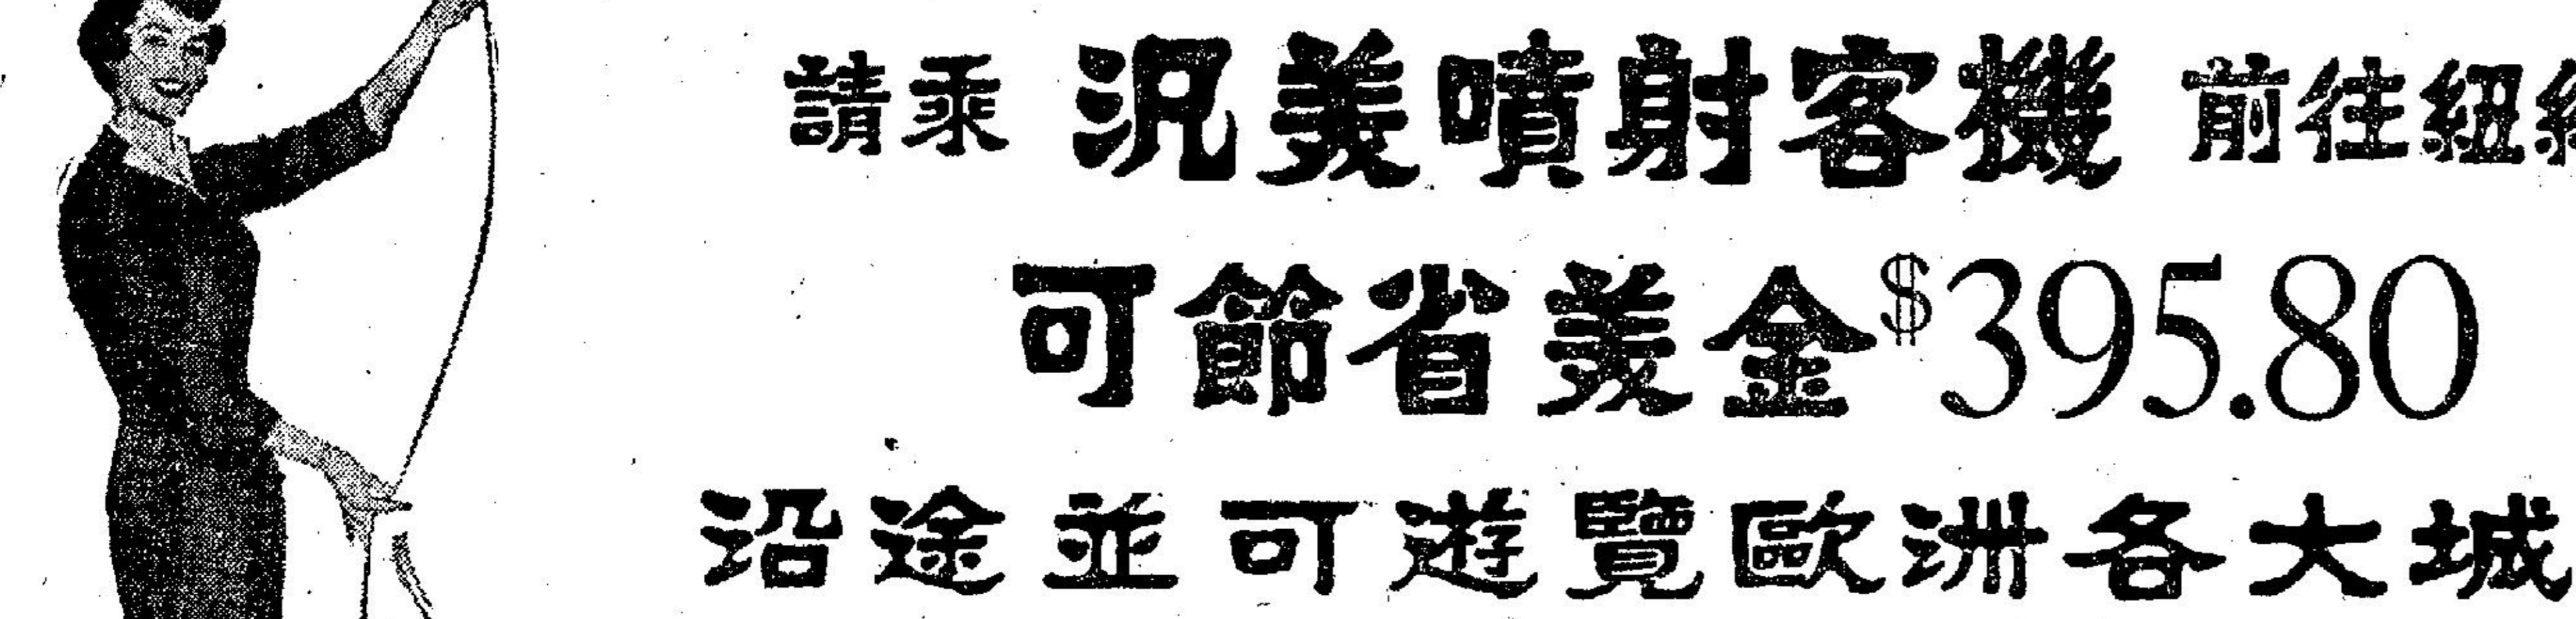 請乘 汎美噴射客機 前往紐
可節省美金$395.80
沿途並可遊覽歐洲各大城